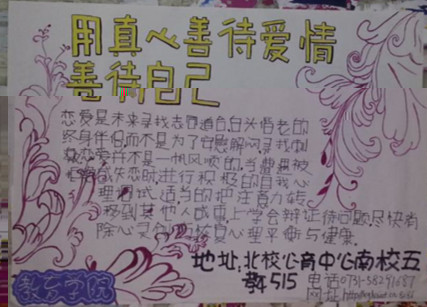 用真心善待爱情
善待自己
恋爱是未来寻找志同道合,白头偕老的
终身伴侣,而不是为了安慰解闷,寻找刺
恋爱并不是一帆风顺的,当遭遇被
失恋时,进行积极的自我心
理调试,适当的把注意力转
移到其他人或事上,学会辩证待问题,尽快消
除心灵,恢复心理平衡与健康.
地址:北校心育中心南校五
教515
电话0731-58291687
网址:http://
教育学院